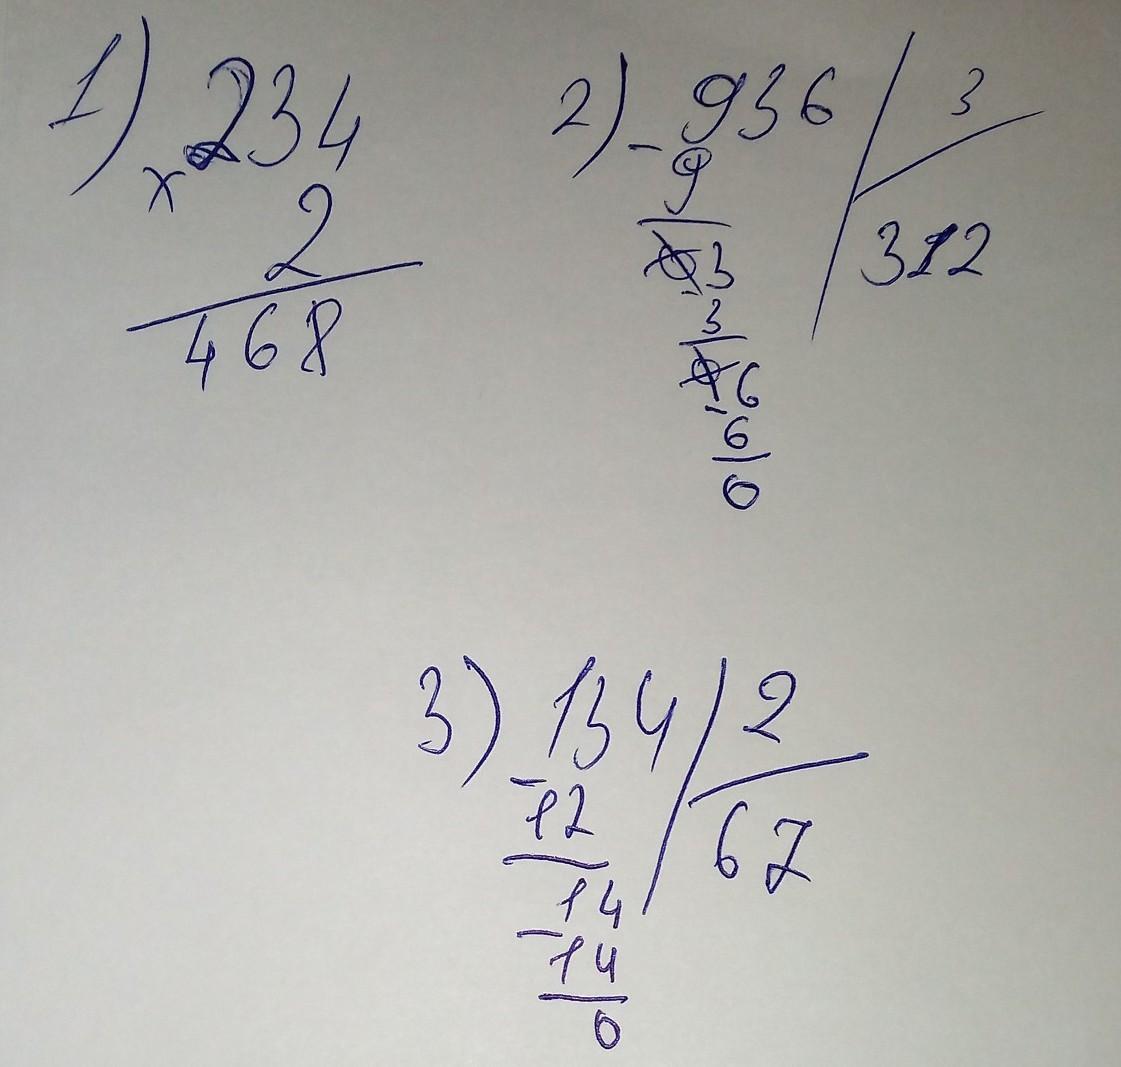 1) 234
x 2
468
2) - 936 / 3
9 312
03
- 3
06
- 6
0
3) 134 / 2
- 12 67
14
- 14
0